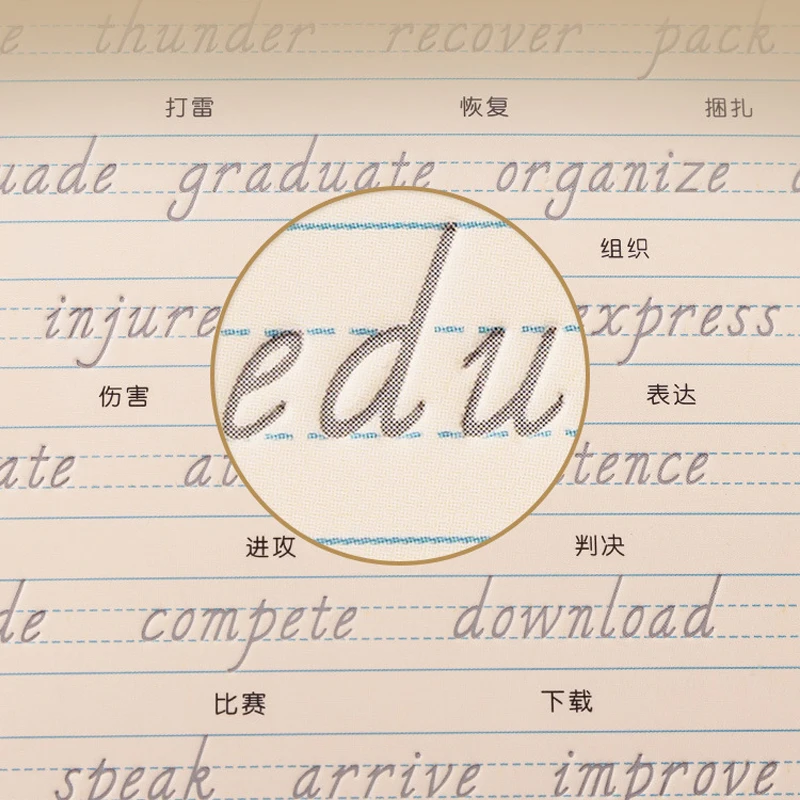 thunder recover pack
打雷 恢复 捆扎
uade graduate organize
组织
injure express
edu
伤害 表达
ate at tence
进攻 判决
de compete download
比赛 下载
speak arrive improve